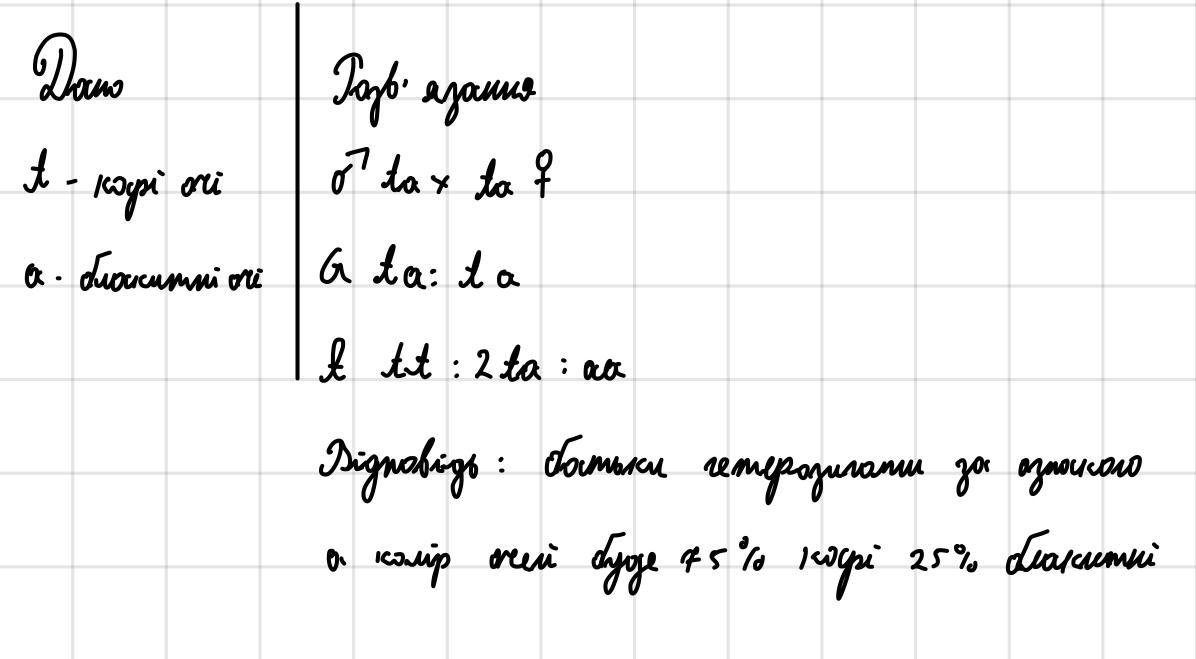 Дано
A - карі очі
a - блакитні очі
Розв'язання
♂ Aa x Aa ♀
G A a: A a
F AA : 2 Aa : aa
Відповідь : батьки гетерозиготи за ознакою
а колір очей буде 75% карі 25% блакитні